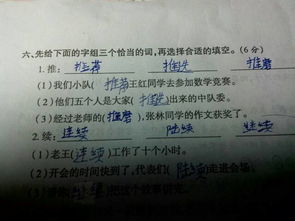 六、先给下面的字组三个恰当的词,再选择合适的填空。(6分)
1.推: 推荐 推选 推磨
(1)我们小队(推荐)王红同学去参加数学竞赛。
(2)他们五个人是大家(推选)出来的中队委。
(3)经过老师的(推磨),张林同学的作文获奖了。
2.续: 连续 陆续 继续
(1)老王(连续)工作了十个小时。
(2)开会的时间快到了,代表们(陆续)走进会场。